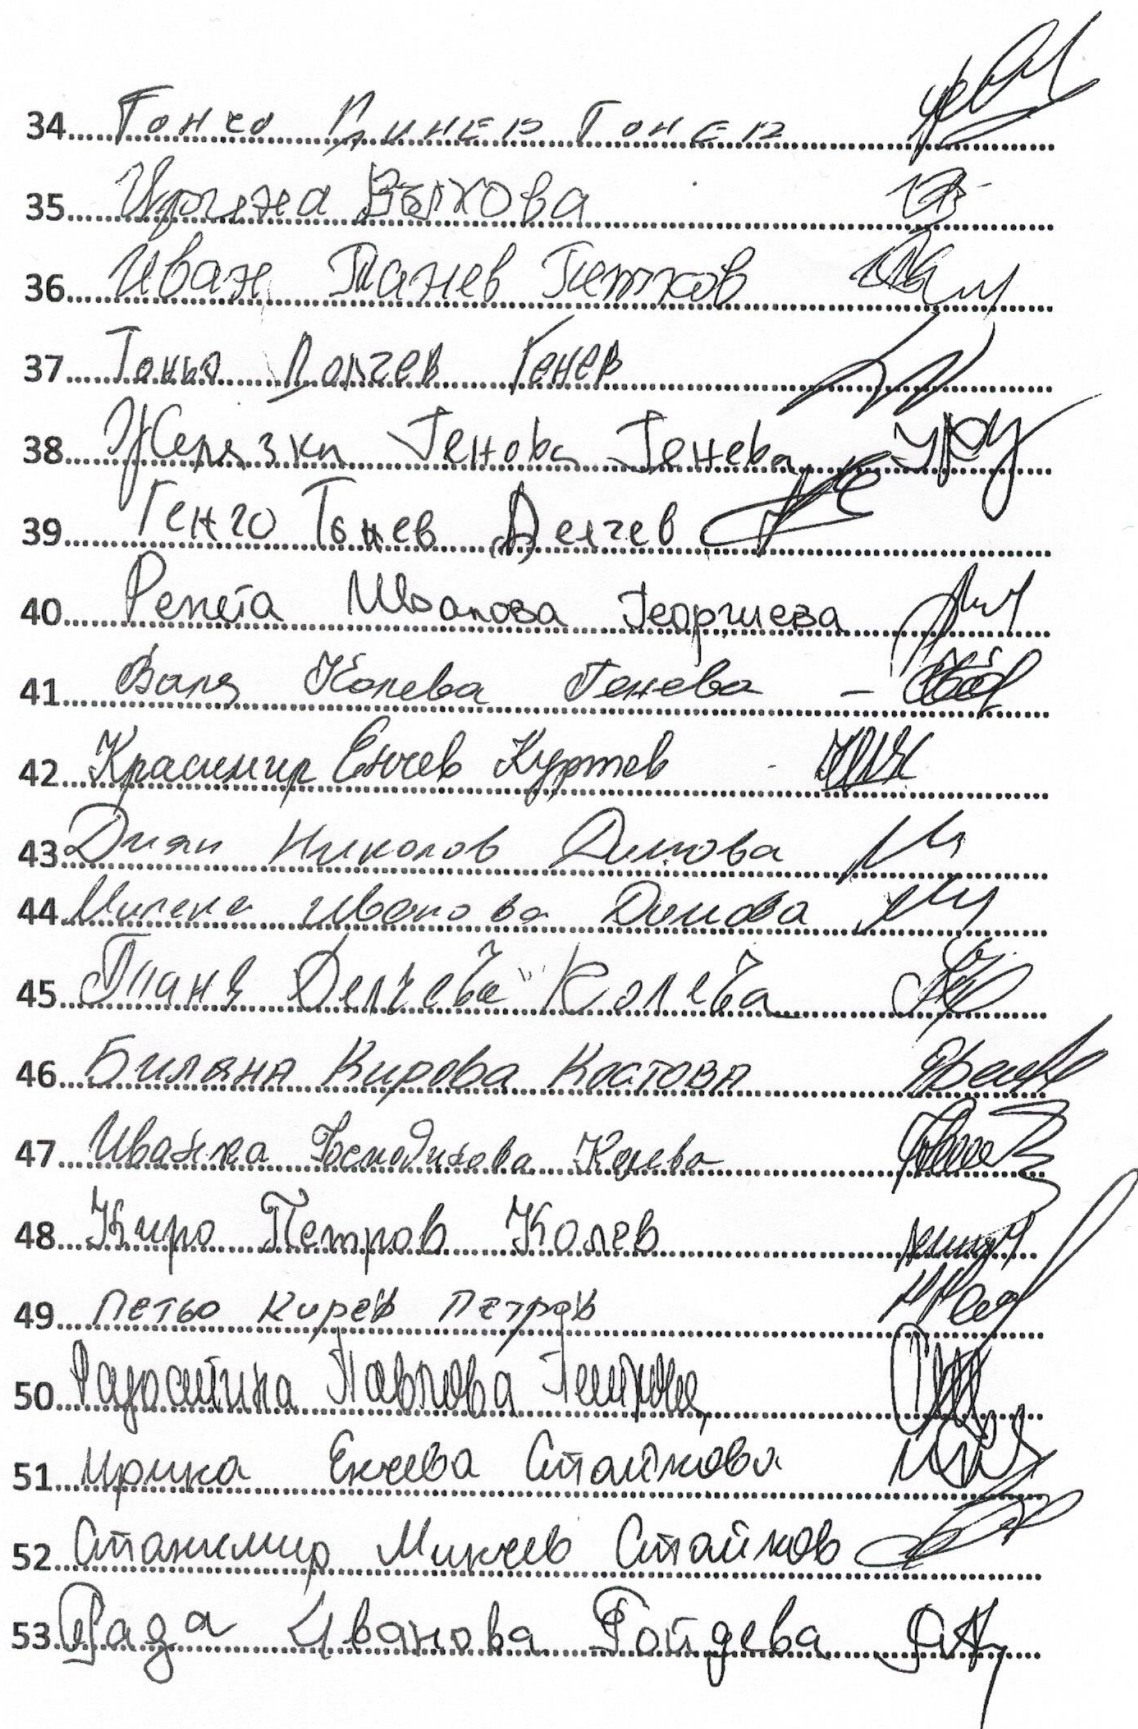 34. Гончо Динев Гонев
35. Вълкова
36. Иван Танев Петков
37. Тоньо Делчев Генев
38. Желязка Генова Генева
39. Генчо Тонев Делчев
40. Ренета Иванова Георгиева
41. Валя Колева Генева
42. Красимир Енчев Куртев
43. Диян Николов Димова
44. Милена Иванова Димова
45. Таня Делчева Колева
46. Биляна Кирова Костова
47. Иванка Господинова Колева
48. Киро Петров Колев
49. Петьо Кирев Петров
50. Радостина Павлова Петкова
51. Ирина Енчева Стайкова
52. Станимир Минчев Стайков
53. Рада Иванова Гойдева